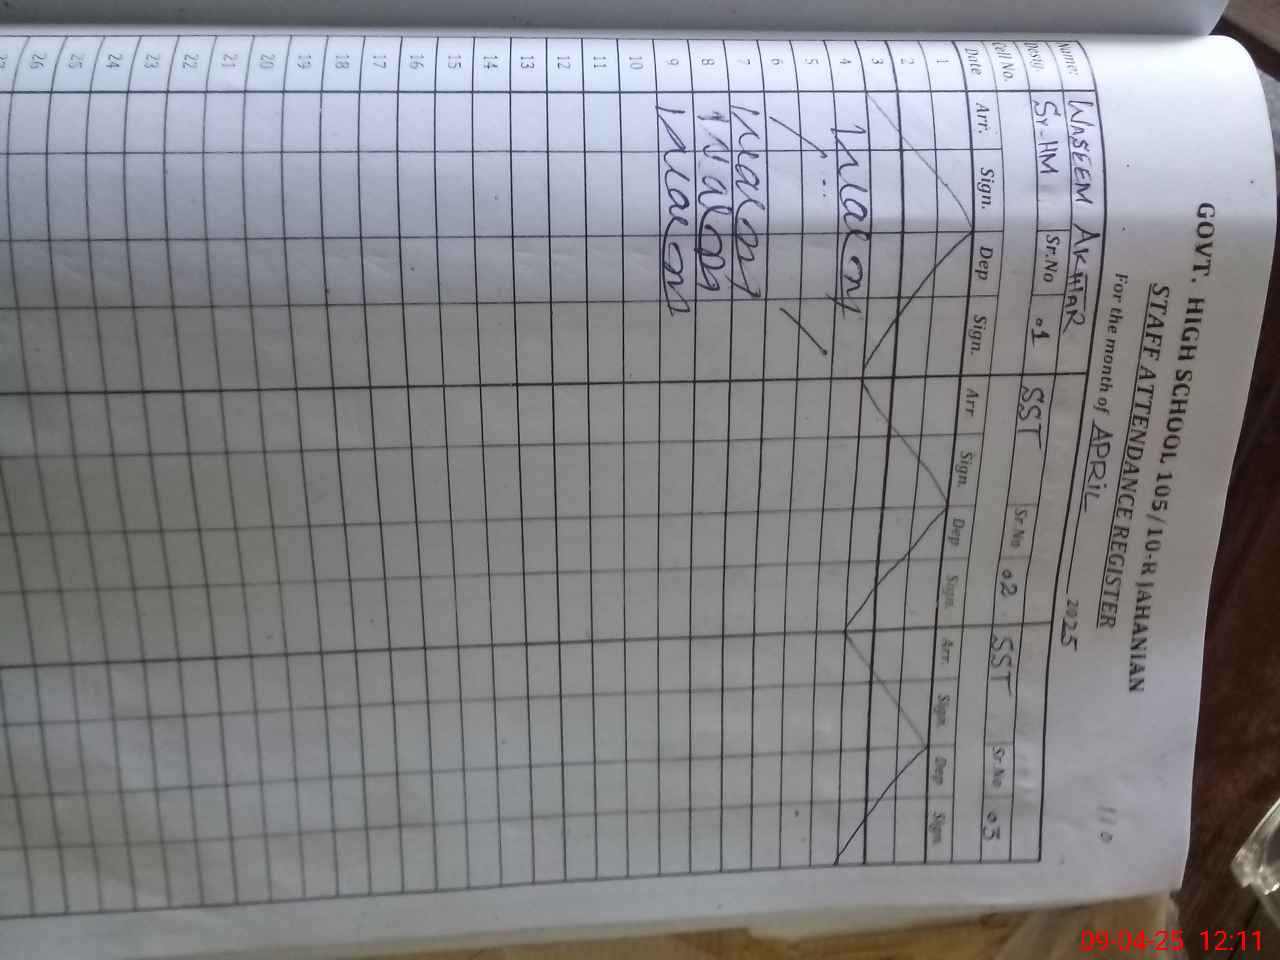 110
GOVT. HIGH SCHOOL 105/10-R JAHANIAN
STAFF ATTENDANCE REGISTER
For the month of APRIL 2025
Name: WASEEM AKHTAR
Desig. Sr-HM Sr.No 01 SST Sr.No 02 SST Sr.No 03
Cell No.
Date Arr. Sign. Dep Sign. Arr Sign. Dep Sign. Arr. Sign. Dep Sign.
1
2
3
4
5
6
7
8
9
10
11
12
13
14
15
16
17
18
19
20
21
22
23
24
25
26
27
09-04-25 12:11